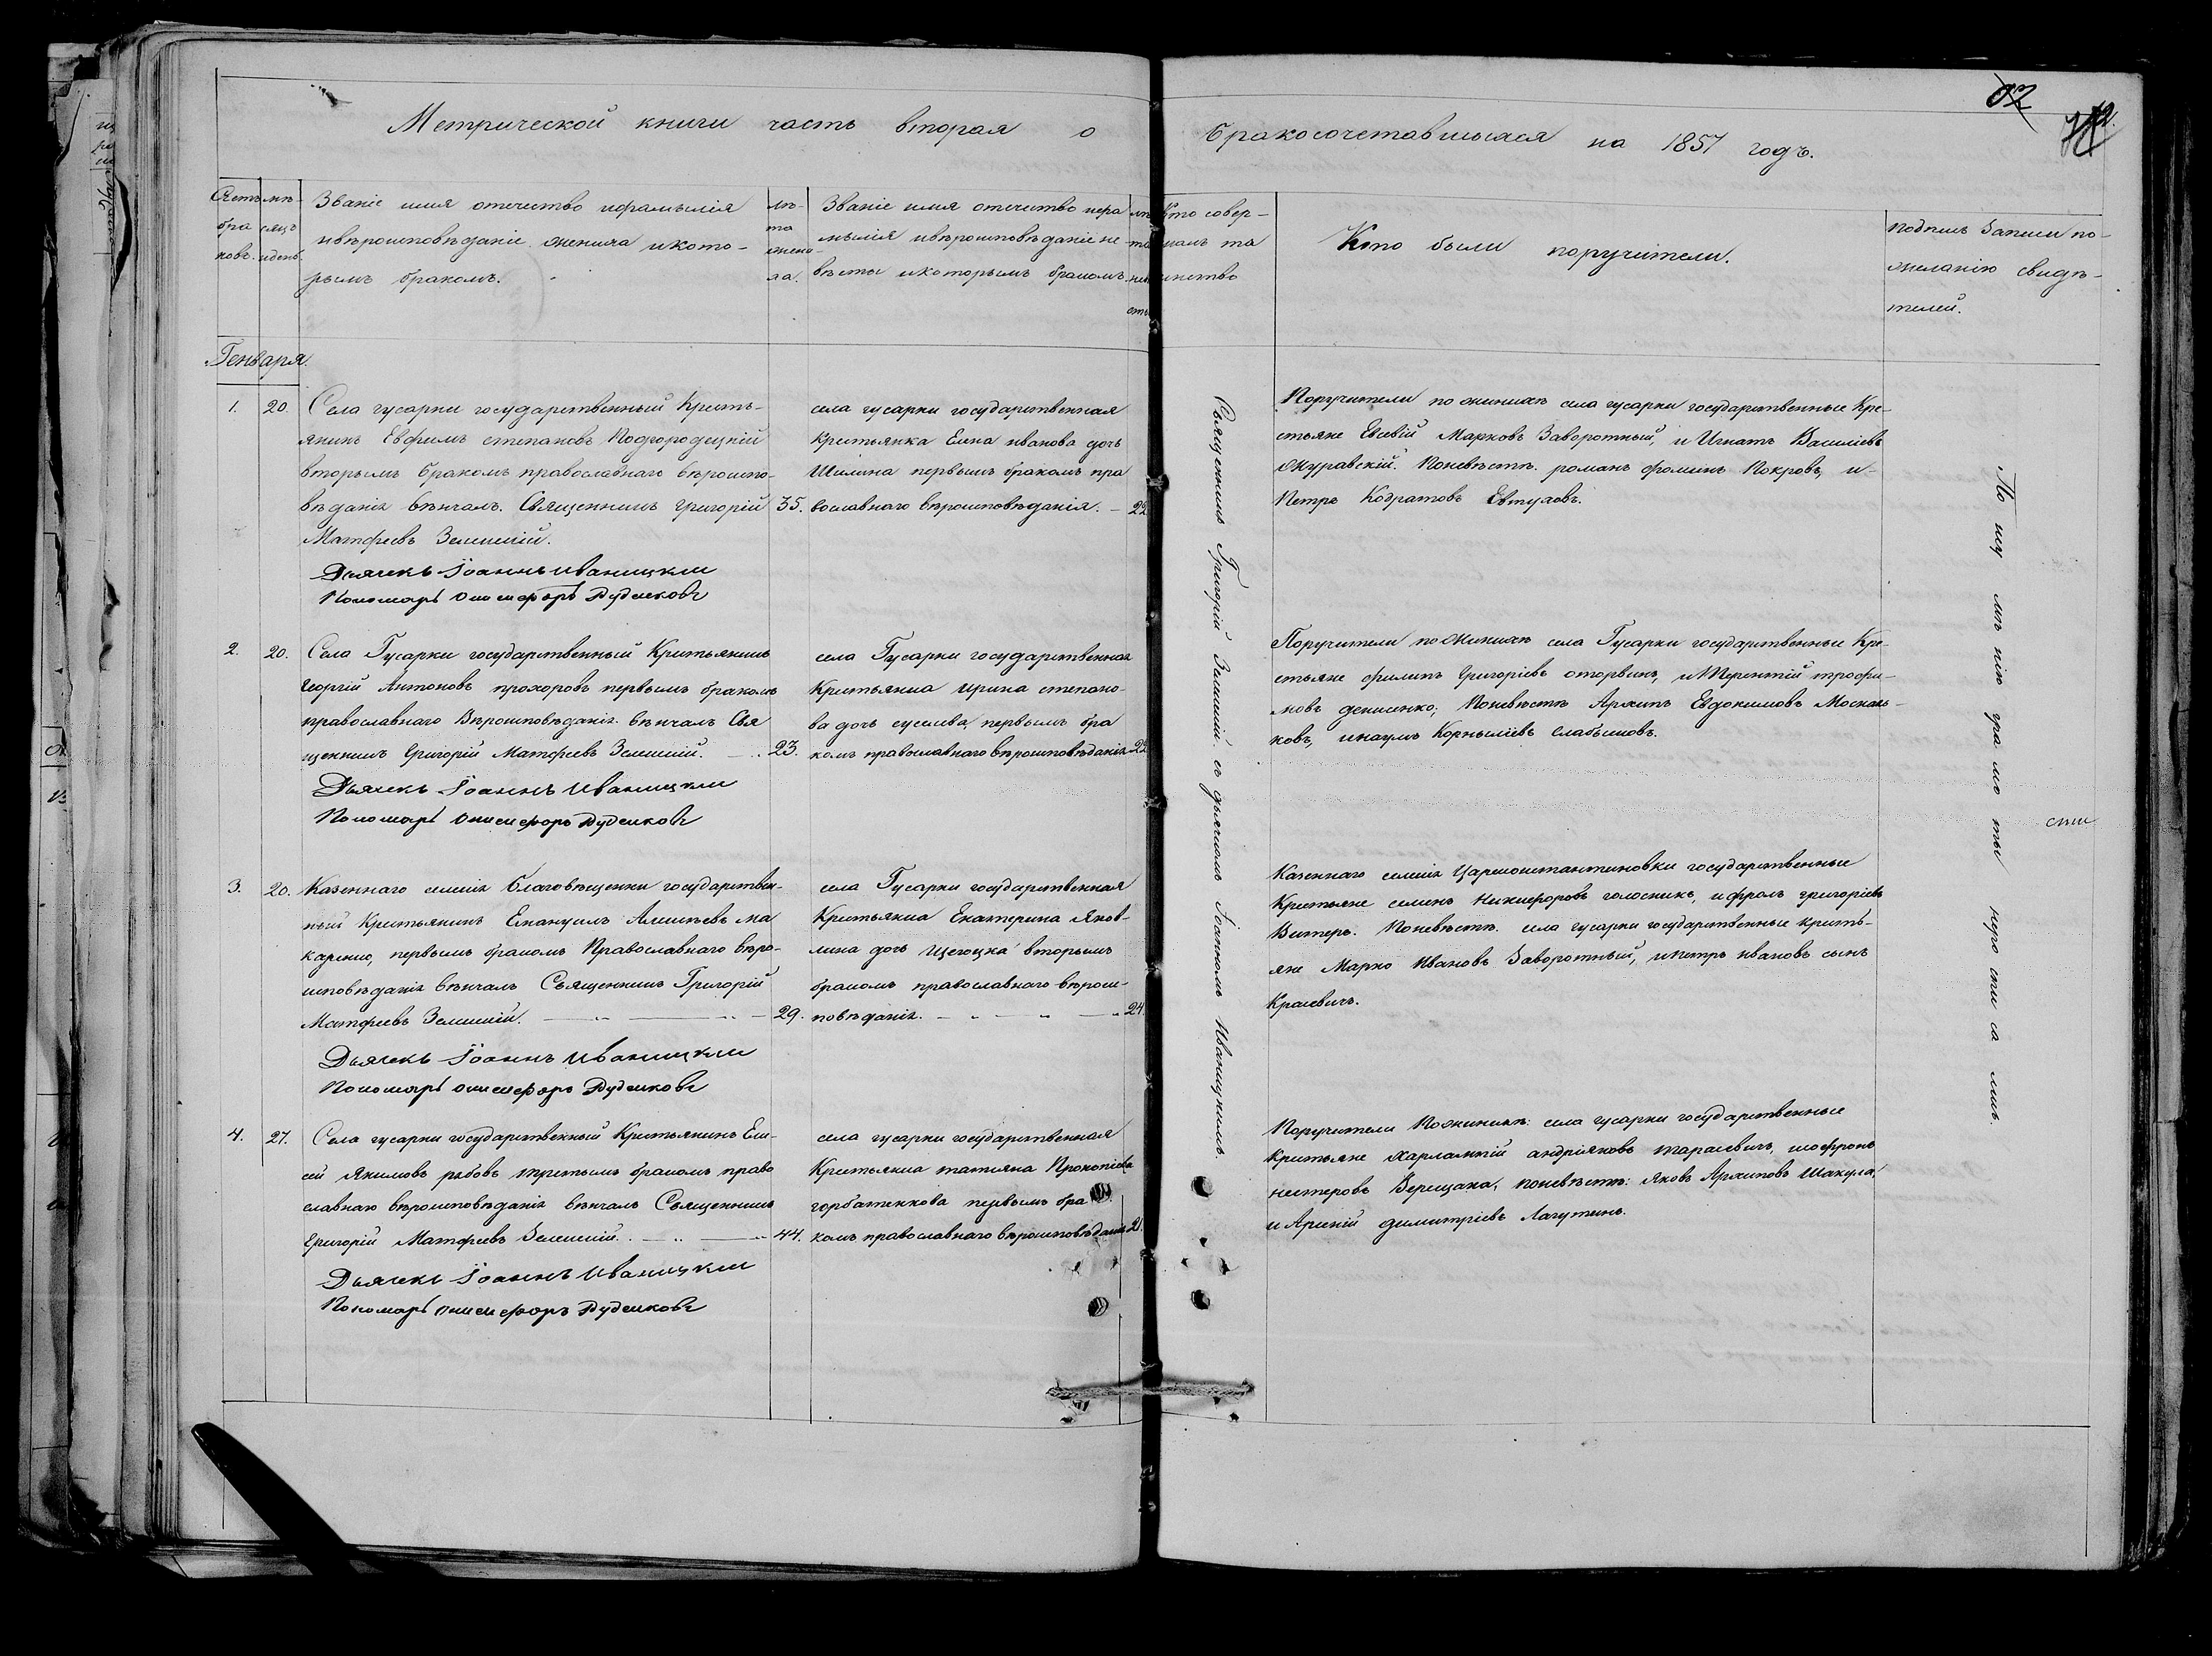 Метрической книги часть вторая о бракосочетавшихся на 1857 годъ.
Счетъ бра ковъ.
мѣ- сяцъ идень.
Званіе имя отечество ифамылія
ивѣроисповѣданіе жениха икото-
рымъ бракомъ.
лѣ-
та
жени-
ха.
Званіе имя отечество ифа
мылія ивѣроисповѣданіе не
вѣсты икоторымъ бракомъ
Кто совер-
шалъ та
инство
Кто были поручители.
подпись Записи по-
желанію свидѣ-
телей.
Генваря.
1. 20. Села гусарки государственный Кресть-
янинъ Евфимъ степановъ Подгородецкій
вторымъ бракомъ православнаго вѣроиспо-
вѣданія вѣнчалъ. Священникъ Григорій 35.
Матфеевъ Зелинскій.
Дьячекъ Іоаннъ Иваницкій
Пономарь Онисифоръ Дудниковъ
села гусарки государственная
Крестьянка Елена иванова дочь
Шилина первымъ бракомъ пра
вославнаго вѣроисповѣданія. — 22
Поручители по женихѣ села гусарки государственные Кре-
стьяне Евсевій Марковъ Заворотный, и Игнатъ Василіевъ
Журавскій. Поневѣстѣ. романъ фоминъ Покровъ, и-
Петръ Кодратовъ Евтуховъ.
2. 20. Села Гусарки государственный Крестьянинъ
Георгій Антоновъ прохоровъ первымъ бракомъ
православнаго Вѣроисповѣданія. вѣнчалъ Свя
щенникъ Григорій Матфеевъ Зелинскій. 23.
Дьячекъ Іоаннъ Иваницкій
Пономарь Онисифоръ Дудниковъ
села Гусарки государственная
Крестьянка Ирина степано-
ва дочь суслива, первымъ бра
комъ православнаго вѣроисповѣданія 22
Поручители по Женихѣ села Гусарки государственные Кре-
стьяне филипъ Григоріевъ оторвинъ, и Терентій трофи-
мовъ денисенко, Поневѣстѣ Архипъ Евдокимовъ Москаль-
ковъ, инаумъ Корниліевъ слабышовъ.
3. 20. Казеннаго селенія Благовѣщенки государствен-
ный Крестьянинъ Емануилъ Алексѣевъ ма
каренко, первымъ бракомъ Православнаго вѣро-
исповѣданія вѣнчалъ Священникъ Григорій
Матфеевъ Зелинскій. 29.
Дьячекъ Іоаннъ Иваницкій
Пономарь Онисифоръ Дудниковъ
села Гусарки государственная
Крестьянка Екатерина Яков-
лина дочь Щегоцка вторымъ
бракомъ православнаго вѣроис-
повѣданія. 24
Казеннаго селенія Цареконстантиновки государственные
Крестьяне семенъ Никифоровъ голосникъ, ифролъ григоріевъ
Витеръ. Поневѣстѣ. села гусарки государственные кресть-
яне Марко Ивановъ Заворотный, ипетръ ивановъ сынъ
Красевичъ.
4. 27. Села гусарки государственный Крестьянинъ Ели-
сей Якимовъ рябовъ третьимъ бракомъ право
славнаго вѣроисповѣданія вѣнчалъ Священникъ
Григорій Матфеевъ Зелинскій. 44.
Дьячекъ Іоаннъ Иваницкій
Пономарь Онисифоръ Дудниковъ
села гусарки государственная
Крестьянка татіяна Прокопіева
горбатенкова первымъ бра
комъ православнаго вѣроисповѣданія 21.
Поручители Поженихѣ: села гусарки государственные
крестьяне харлампій андріяновъ тарасевичъ, исофронъ
нестеровъ Верещака, поневѣстѣ: Яковъ Архиповъ Шакула,
и Арсеній димитріевъ Лагутинъ.
Священникъ Григорій Зелинскій. съ дьячкомъ Іоанномъ Иваницкимъ.
По неу мѣ нію гра мо ты неро спи са лись.